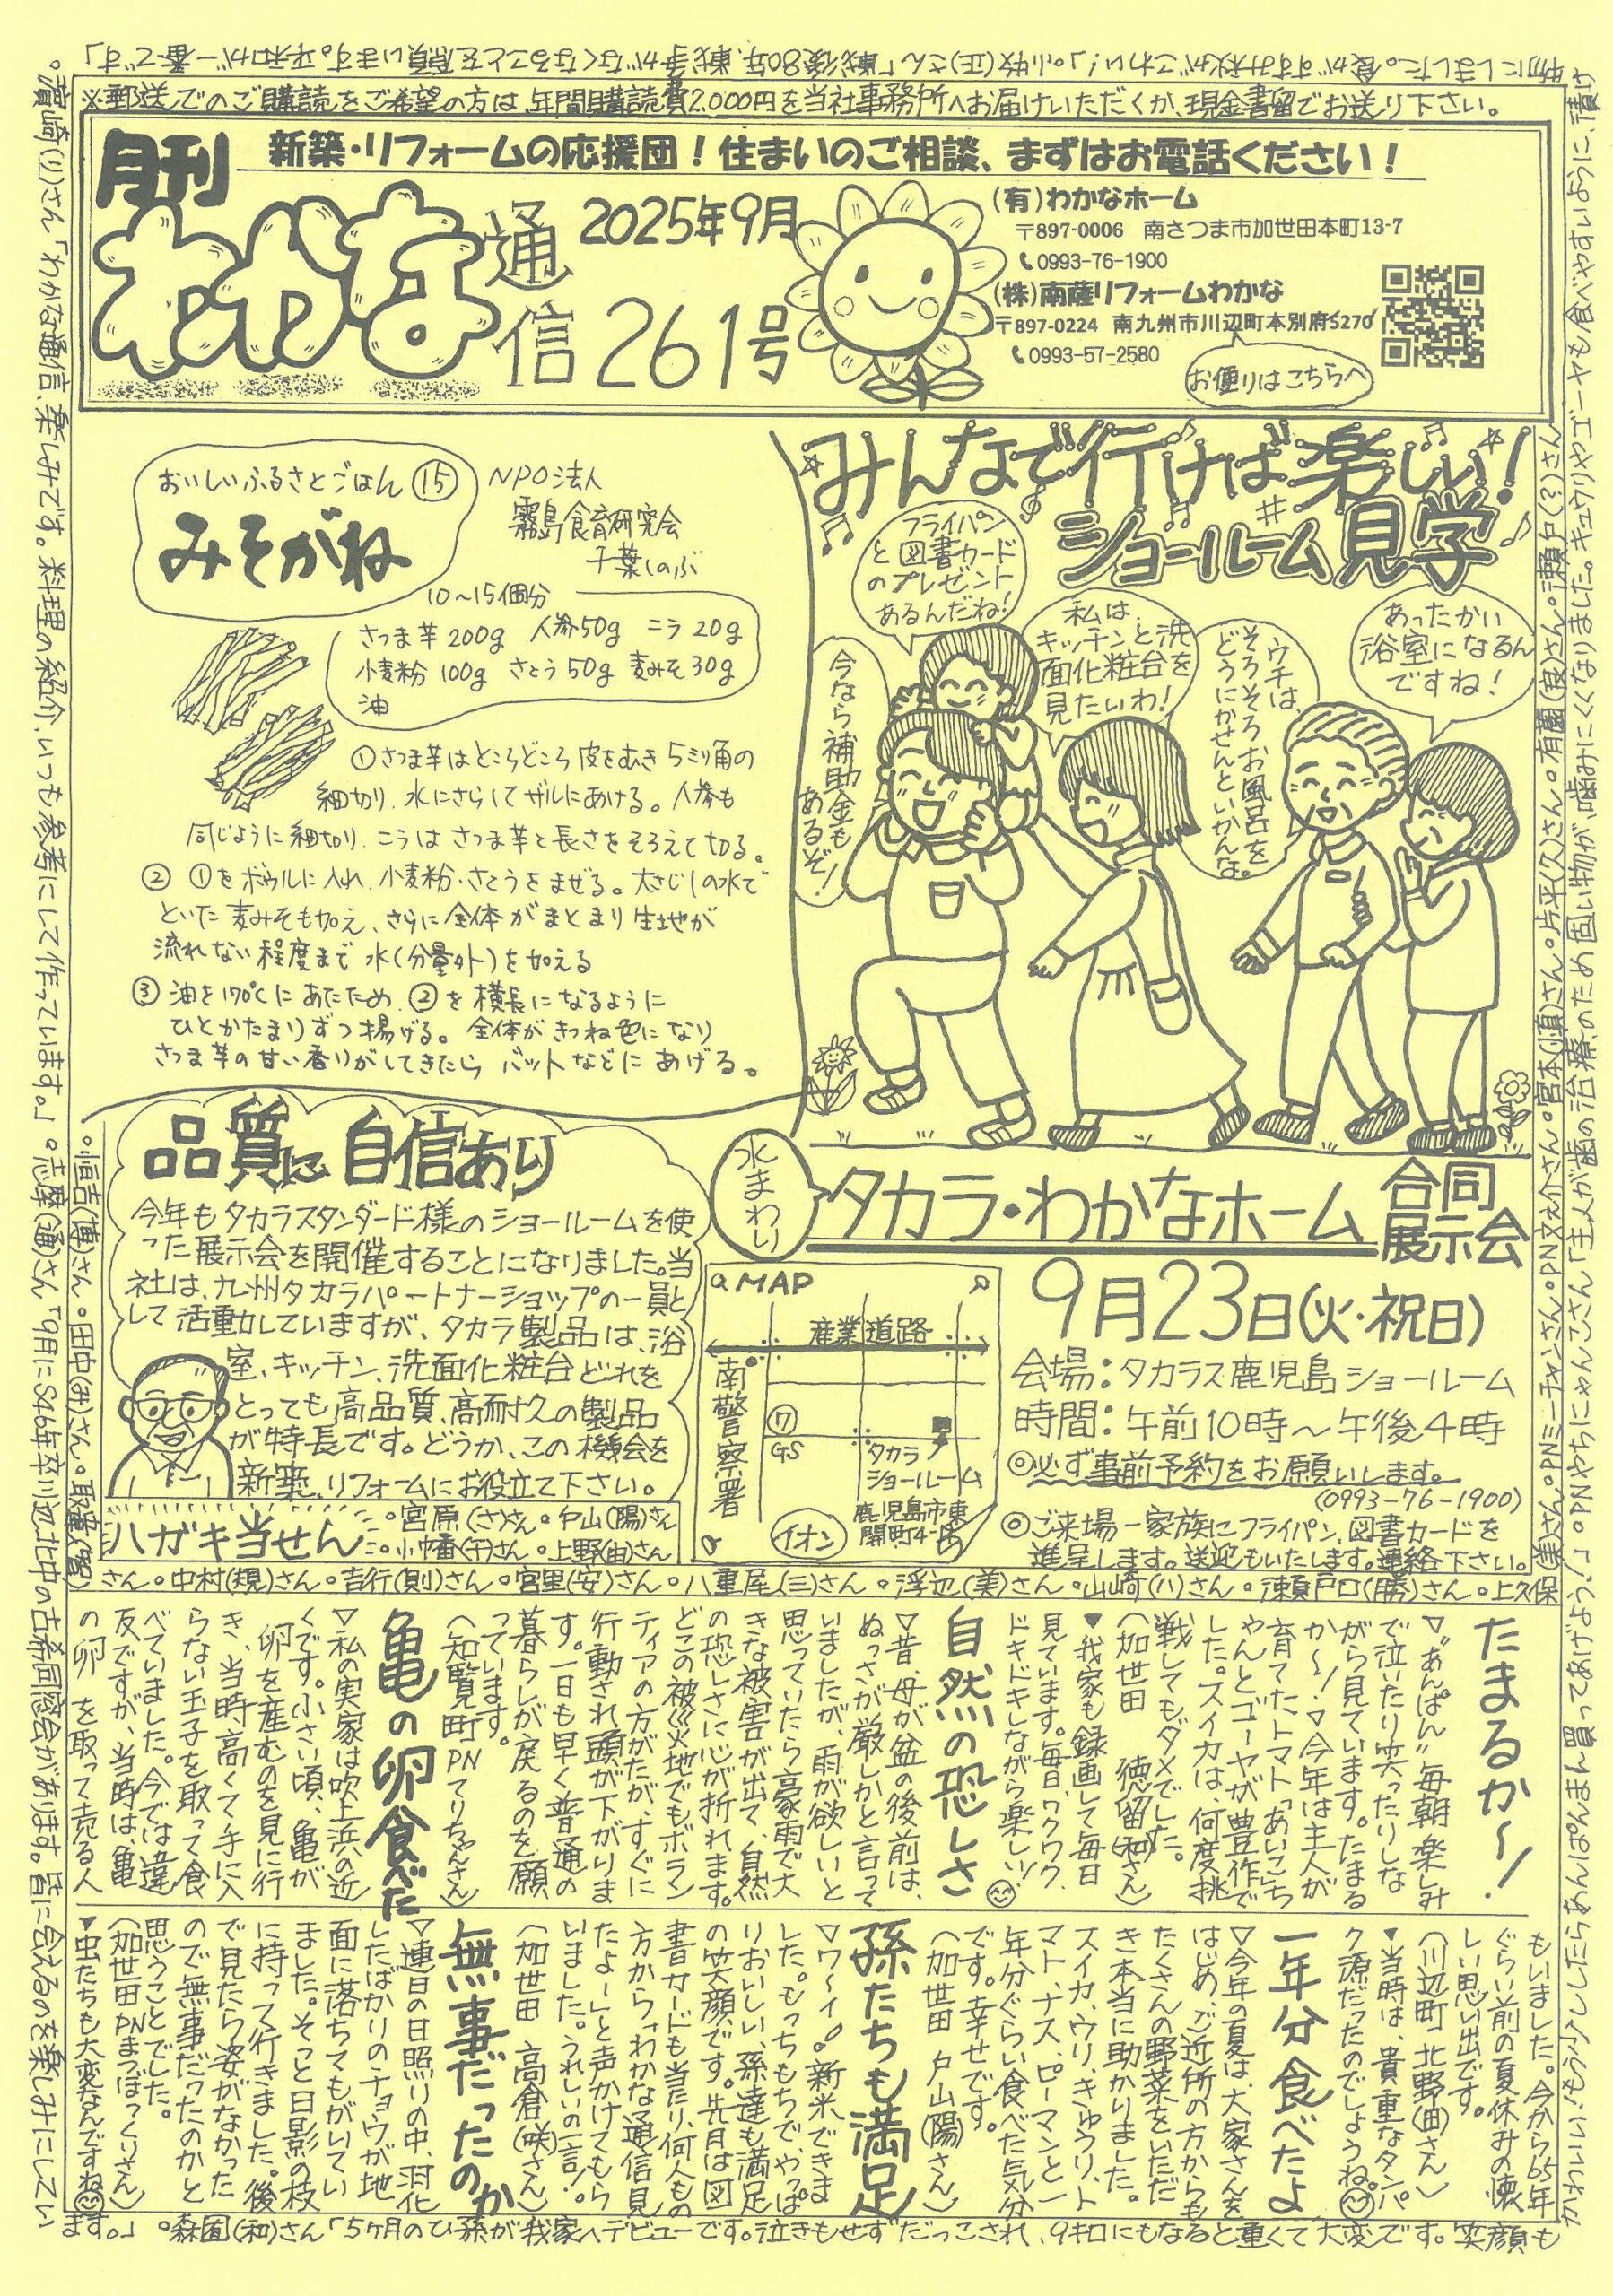 ※郵送でのご購読をご希望の方は、年間購読費2,000円を当社事務所へお届けいただくか、現金書留でお送り下さい。
月刊
新築・リフォームの応援団！住まいのご相談、まずはお電話ください！
わかな
通信
2025年9月
261号
(有)わかなホーム
〒897-0006 南さつま市加世田本町13-7
0993-76-1900
(株)南薩リフォームわかな
〒897-0224 南九州市川辺町本別府5270
0993-57-2580
お便りはこちらへ
おいしいふるさとごはん⑮
みそがね
NPO法人
霧島食育研究会
千葉しのぶ
10～15個分
さつま芋200g 人参50g ニラ20g
小麦粉100g さとう50g 麦みそ30g
油
①さつま芋はところどころ皮をむき5ミリ角の
細切り、水にさらしてザルにあける。人参も
同じように細切り、ニラはさつま芋と長さをそろえて切る。
② ①をボウルに入れ、小麦粉・さとうをまぜる。大さじ1の水で
といた麦みそも加え、さらに全体がまとまり生地が
流れない程度まで水(分量外)を加える
③ 油を170℃にあたため、②を横長になるように
ひとかたまりずつ揚げる。全体がきつね色になり
さつま芋の甘い香りがしてきたら バットなどにあげる。
みんなで行けば楽しい！
ショールーム見学
フライパン
と図書カード
のプレゼント
あるんだね！
今なら補助金も
あるぞ！
私は、
キッチンと洗
面化粧台を
見たいわ！
ウチは、
そろそろお風呂を
どうにかせんといかんな。
あったかい
浴室になるん
ですね！
品質に自信あり
今年もタカラスタンダード様のショールームを使
った展示会を開催することになりました。当
社は、九州タカラパートナーショップの一員と
して活動していますが、タカラ製品は、浴
室、キッチン、洗面化粧台どれを
とっても高品質、高耐久の製品
が特長です。どうか、この機会を
新築、リフォームにお役立て下さい。
水まわり
タカラ・わかなホーム 合同展示会
MAP
産業道路
南警察署
⑦
GS
タカラ
ショールーム
鹿児島市東
開町4-
イオン
9月23日(火・祝日)
会場：タカラス鹿児島ショールーム
時間：午前10時～午後4時
◎必ず事前予約をお願いします。
(0993-76-1900)
◎ご来場一家族にフライパン、図書カードを
進呈します。送迎もいたします。連絡下さい。
ハガキ当せん
・宮原(さ)さん・戸山(陽)さん
・小幡(千)さん・上野(由)さん
さん・中村(規)さん・吉行(則)さん・宮里(安)さん・八重尾(三)さん・浮辺(美)さん・山崎(ハ)さん・瀬戸口(勝)さん・上久保
たまるか～！
▽“あんぱん”毎朝楽しみ
で泣いたり笑ったりしな
がら見ています。たまる
か～！▽今年は主人が
育てたトマト“あいこ”ち
ゃんとゴーヤが豊作で
した。スイカは、何度挑
戦してもダメでした。
(加世田 徳留(和)さん)
▼我家も録画して毎日
見ています。毎日、ワクワク、
ドキドキしながら楽しい！
自然の恐しさ
▽昔、母が盆の後前は、
ぬっさが厳しかと言って
いましたが、雨が欲しいと
思っていたら豪雨で大
きな被害が出て、自然
の恐しさに心が折れます。
どこの被災地でもボラン
ティアの方がたが、すぐに
行動され頭が下がりま
す。一日も早く普通の
暮らしが戻るのを願
っています。
(知覧町PNてりちゃんさん)
亀の卵食べた
▽私の実家は吹上浜の近
くです。小さい頃、亀が
卵を産むのを見に行
き、当時高くて手に入
らない玉子を取って食
べていました。今では違
反ですが、当時は、亀
の卵を取って売る人
もいました。今から65年
ぐらい前の夏休みの懐
しい思い出です。
(川辺町 北野(由)さん)
▼当時は、貴重なタンパ
ク源だったのでしょうね。
一年分食べたよ
▽今年の夏は、大家さんを
はじめ、ご近所の方からも
たくさんの野菜をいただ
き本当に助かりました。
スイカ、ウリ、きゅうり、ト
マト、ナス、ピーマンと一
年分ぐらい食べた気分
です。幸せです。
(加世田 戸山(陽)さん)
孫たちも満足
▽ワ～イ！新米できま
した。もっちもちで、やっぱ
りおいしい。孫達も満足
の笑顔です。先月は図
書カードも当たり、何人もの
方から「わかな通信見
たよ～」と声かけてもら
いました。うれしいの一言！。
(加世田 高倉(咲)さん)
無事だったのか
▽連日の日照りの中、羽化
したばかりのチョウが地
面に落ちてもがいてい
ました。そっと日影の枝
に持って行きました。後
で見たら姿がなかった
ので無事だったのかと
思うことでした。
(加世田PNまつぼっくりさん)
▼虫たちも大変なんですね
・恒吉(博)さん・田中(み)さん・取違(智)
美さん・PNミーチャンさん・PN文太介さん・宮本(順)さん・片平(久)さん・有薗(良)さん・瀬戸(ミ)さん
・PNやちにゃんこさん「主人が歯の治療のため固い物が、噛みにくくなりました。キュウリやゴーヤも食べやすいように、漬け
物にしました。食がすすみ秋がこわい！」・小牧(正)さん「戦後80年、戦争がなくなることを願います。平和が一番です」
・濱崎(リ)さん「わかな通信、楽しみです。料理の紹介、いつも参考にして作っています。」・志摩(通)さん「9月にS46年卒川辺北中の古希同窓会があります。皆に会えるのを楽しみにしてい
ます。」・森園(和)さん「5ヶ月のひ孫が我家へデビューです。泣きもせずだっこされ、9キロにもなると重くて大変です。笑顔も
かわいい、もう少ししたらあんぱんまん買ってあげよう！」